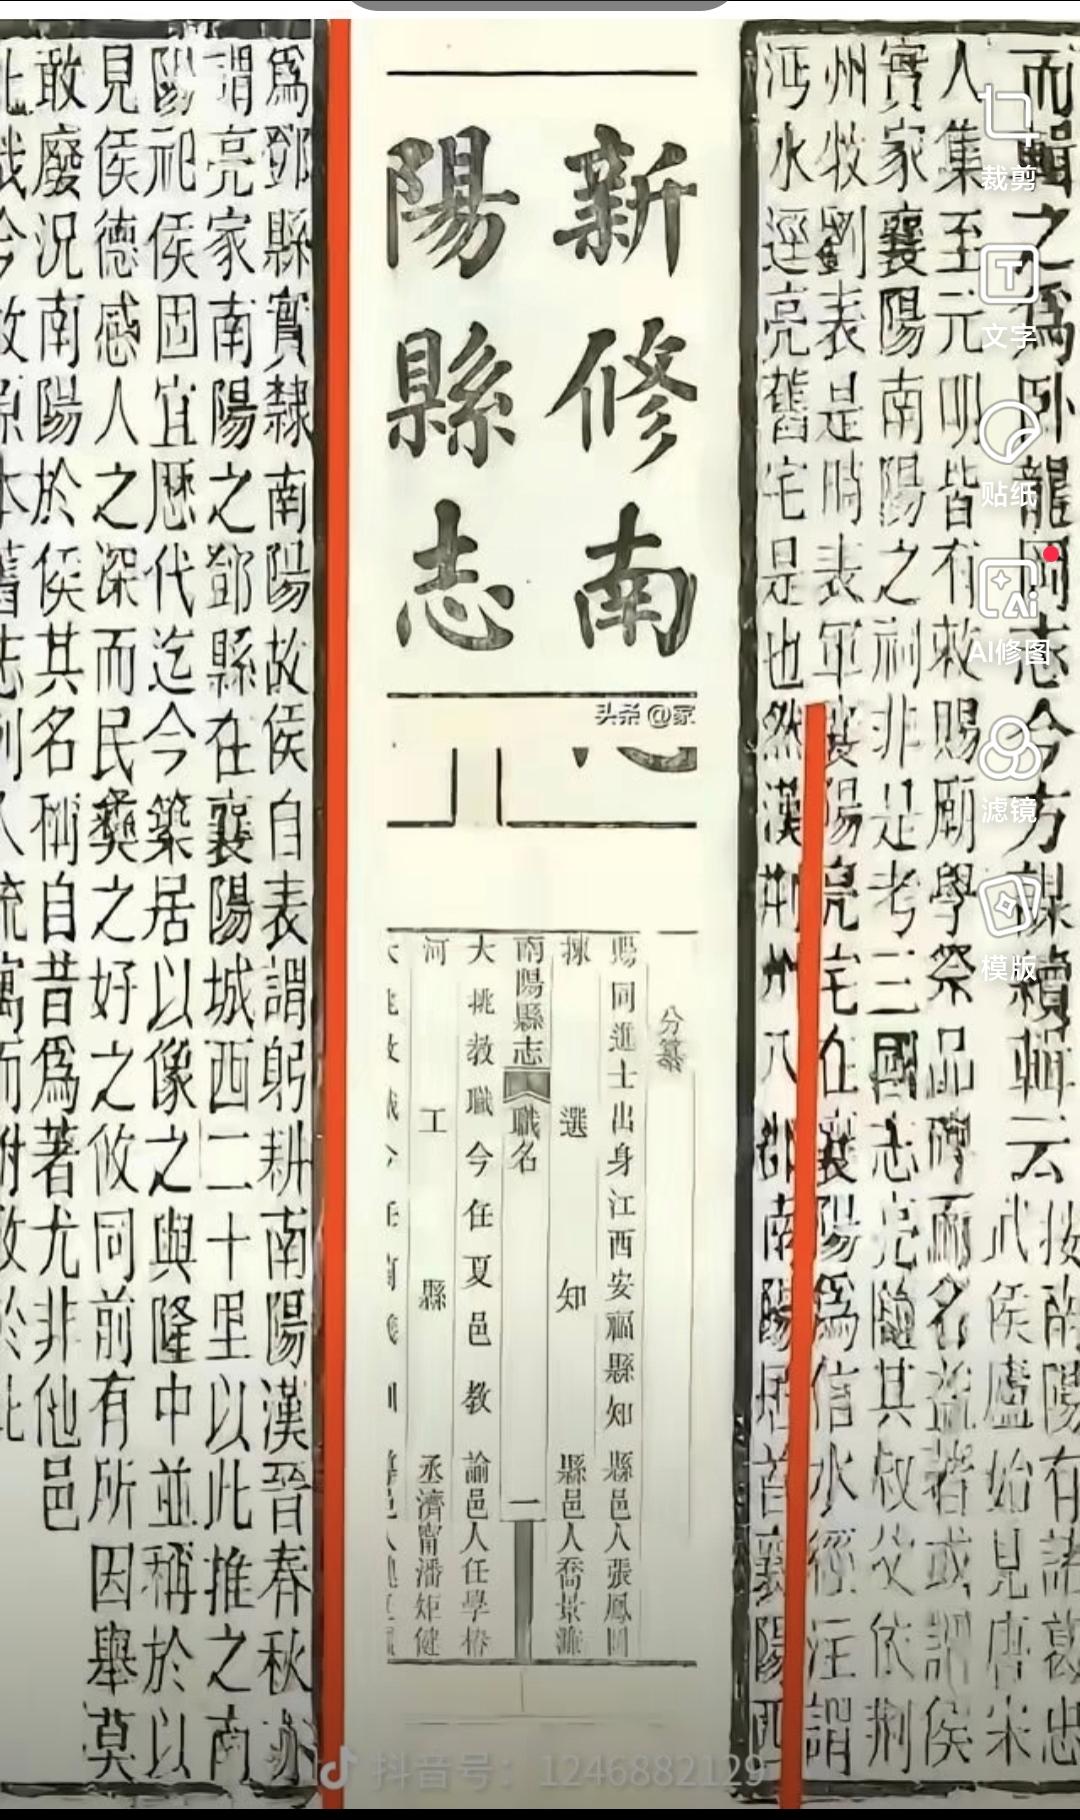 而輯之爲卧龍岡志今方謀續輯云
按南陽有諸葛忠
武侯廬始見唐宋
人集至元明皆有敕賜廟學祭品碑而名益著或謂侯
實家襄陽南陽之祠非是考三國志亮隨其叔父依荆
州牧劉表是時表軍襄陽亮宅在襄陽爲信水經注謂
沔水逕亮舊宅是也然漢荆州八郡南陽居首襄陽西
新修南
陽縣志
頭條@家
分纂
賜同進士出身江西安福縣知縣邑人張鳳岡
揀選知縣邑人喬景濂
南陽縣志 職名 一
大挑教職今任夏邑教諭邑人任學椿
河工縣丞濟甯潘矩健
爲鄧縣實隸南陽故侯自表謂躬耕南陽漢晉春秋亦
謂亮家南陽之鄧縣在襄陽城西二十里以此推之南
陽祀侯固宜歷代迄今築居以像之與隆中並稱於以
見侯德感人之深而民彝之好之攸同前有所因舉莫
敢廢況南陽於侯其名稱自昔爲著尤非他邑
此哉今故原本舊志列入流寓而附改於此
裁剪
文字
贴纸
AI修图
滤镜
模版
抖音号：1246882129